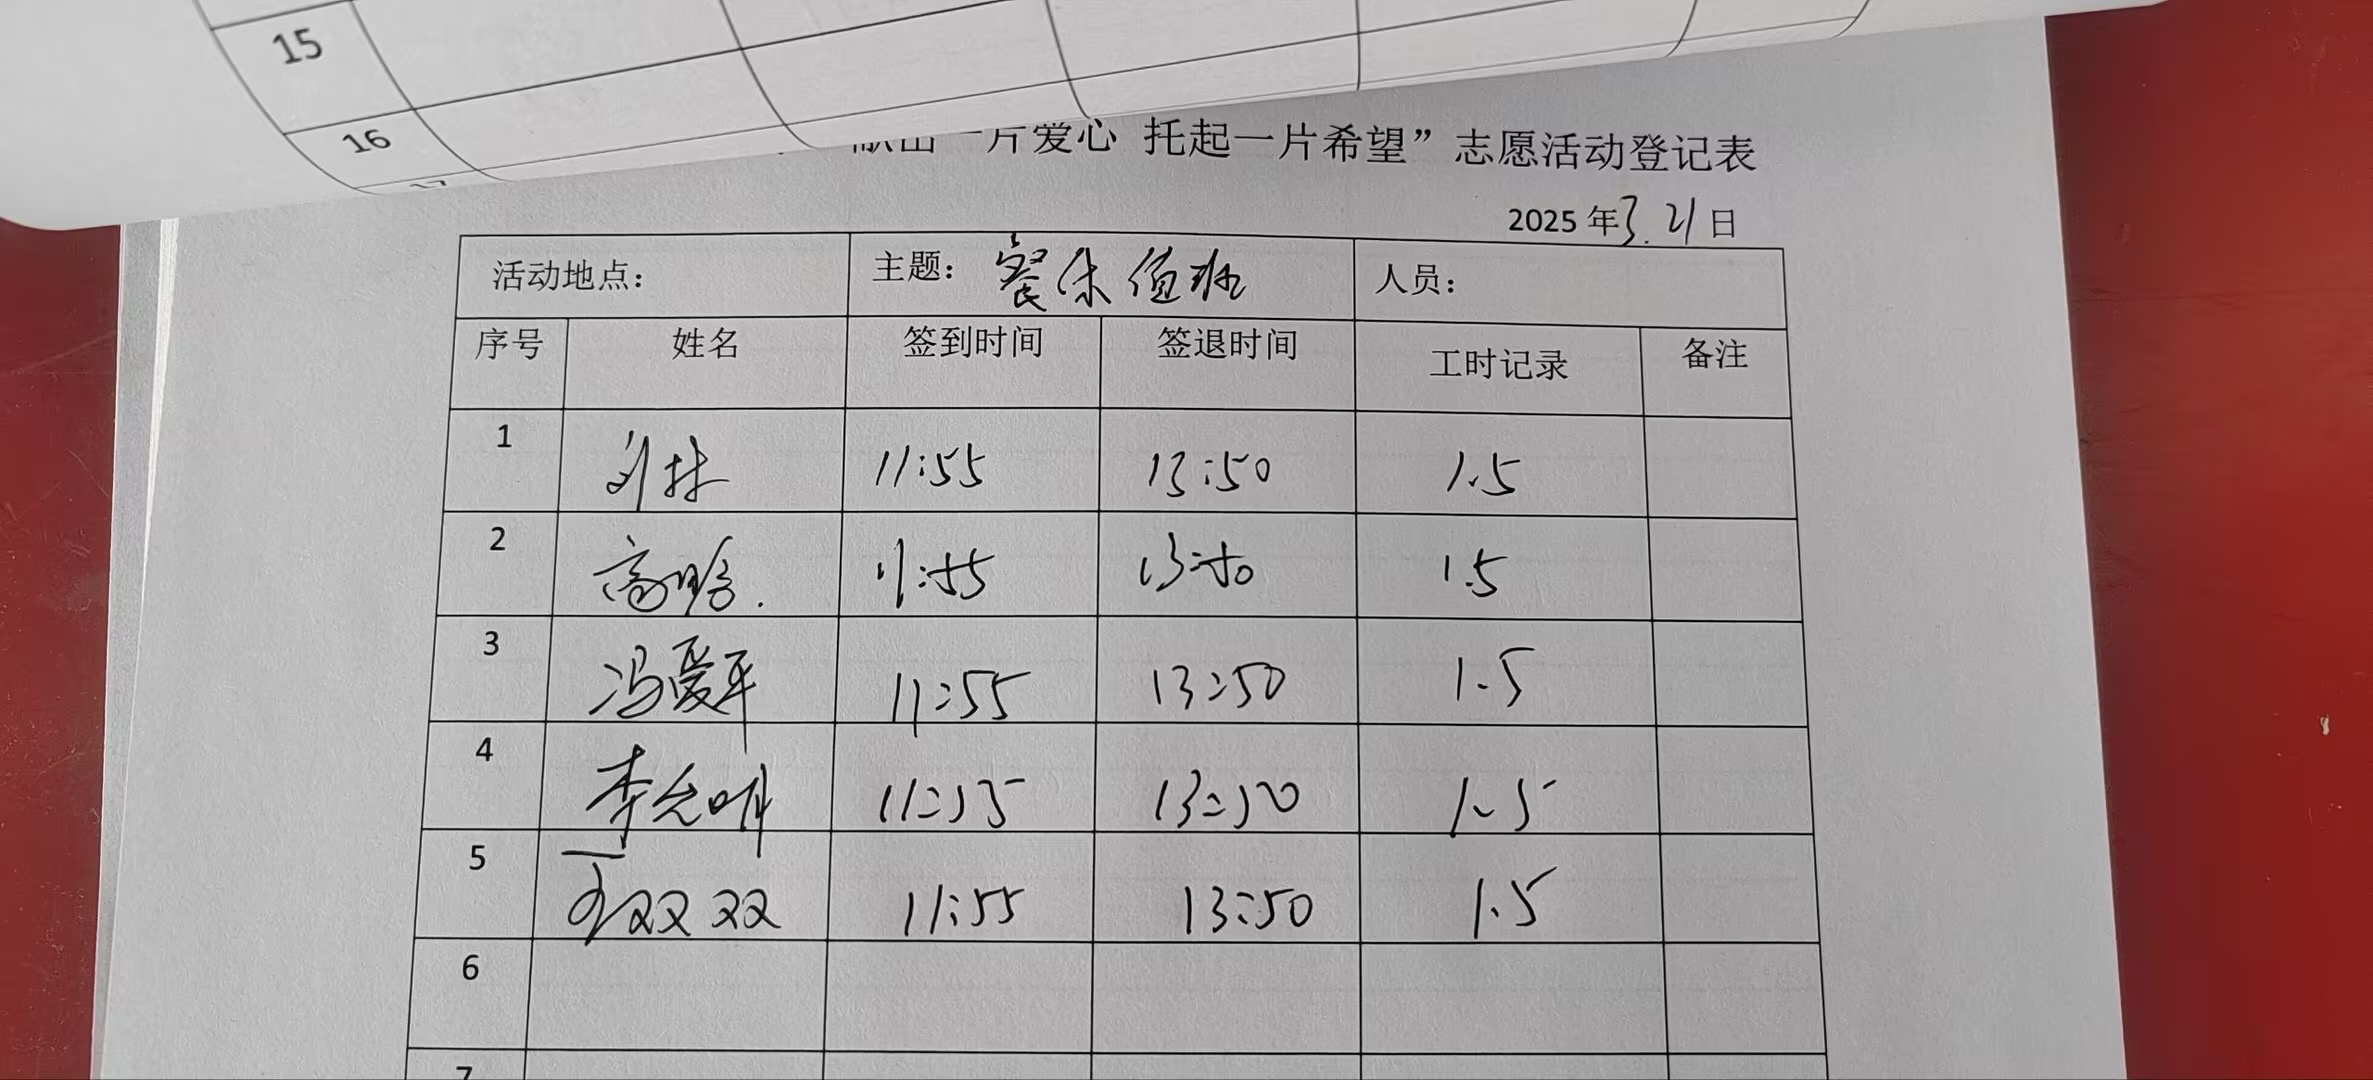 15
16
17
献出一片爱心 托起一片希望”志愿活动登记表
2025 年3.21日
活动地点： 主题：餐休值班 人员：
序号 姓名 签到时间 签退时间 工时记录 备注
1 刘林 11:55 13:50 1.5
2 高晗. 11:55 13:50 1.5
3 冯爱平 11:55 13:50 1.5
4 李允明 11:55 13:50 1.5
5 双双 11:55 13:50 1.5
6
7